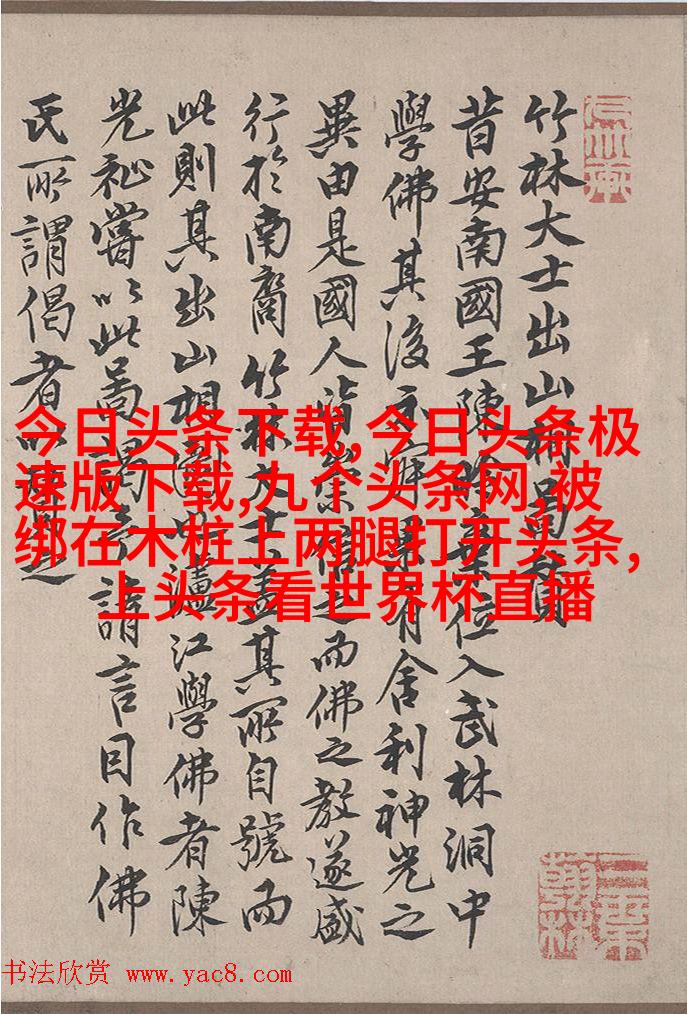 竹林大士出山
昔安南國王陳位入武林洞中
學佛其後有舍利神光之
異由是國人皆崇信之而佛之教遂盛
行於南裔竹林大士蓋其所自號而
此則其出山相瀘江學佛者陳
光祉嘗以此請言因作佛
氏所謂偈者以之
今日头条下载,今日头条极
速版下载,九个头条网,被
绑在木桩上两腿打开头条,
上头条看世界杯直播
书法欣赏 www.yac8.com